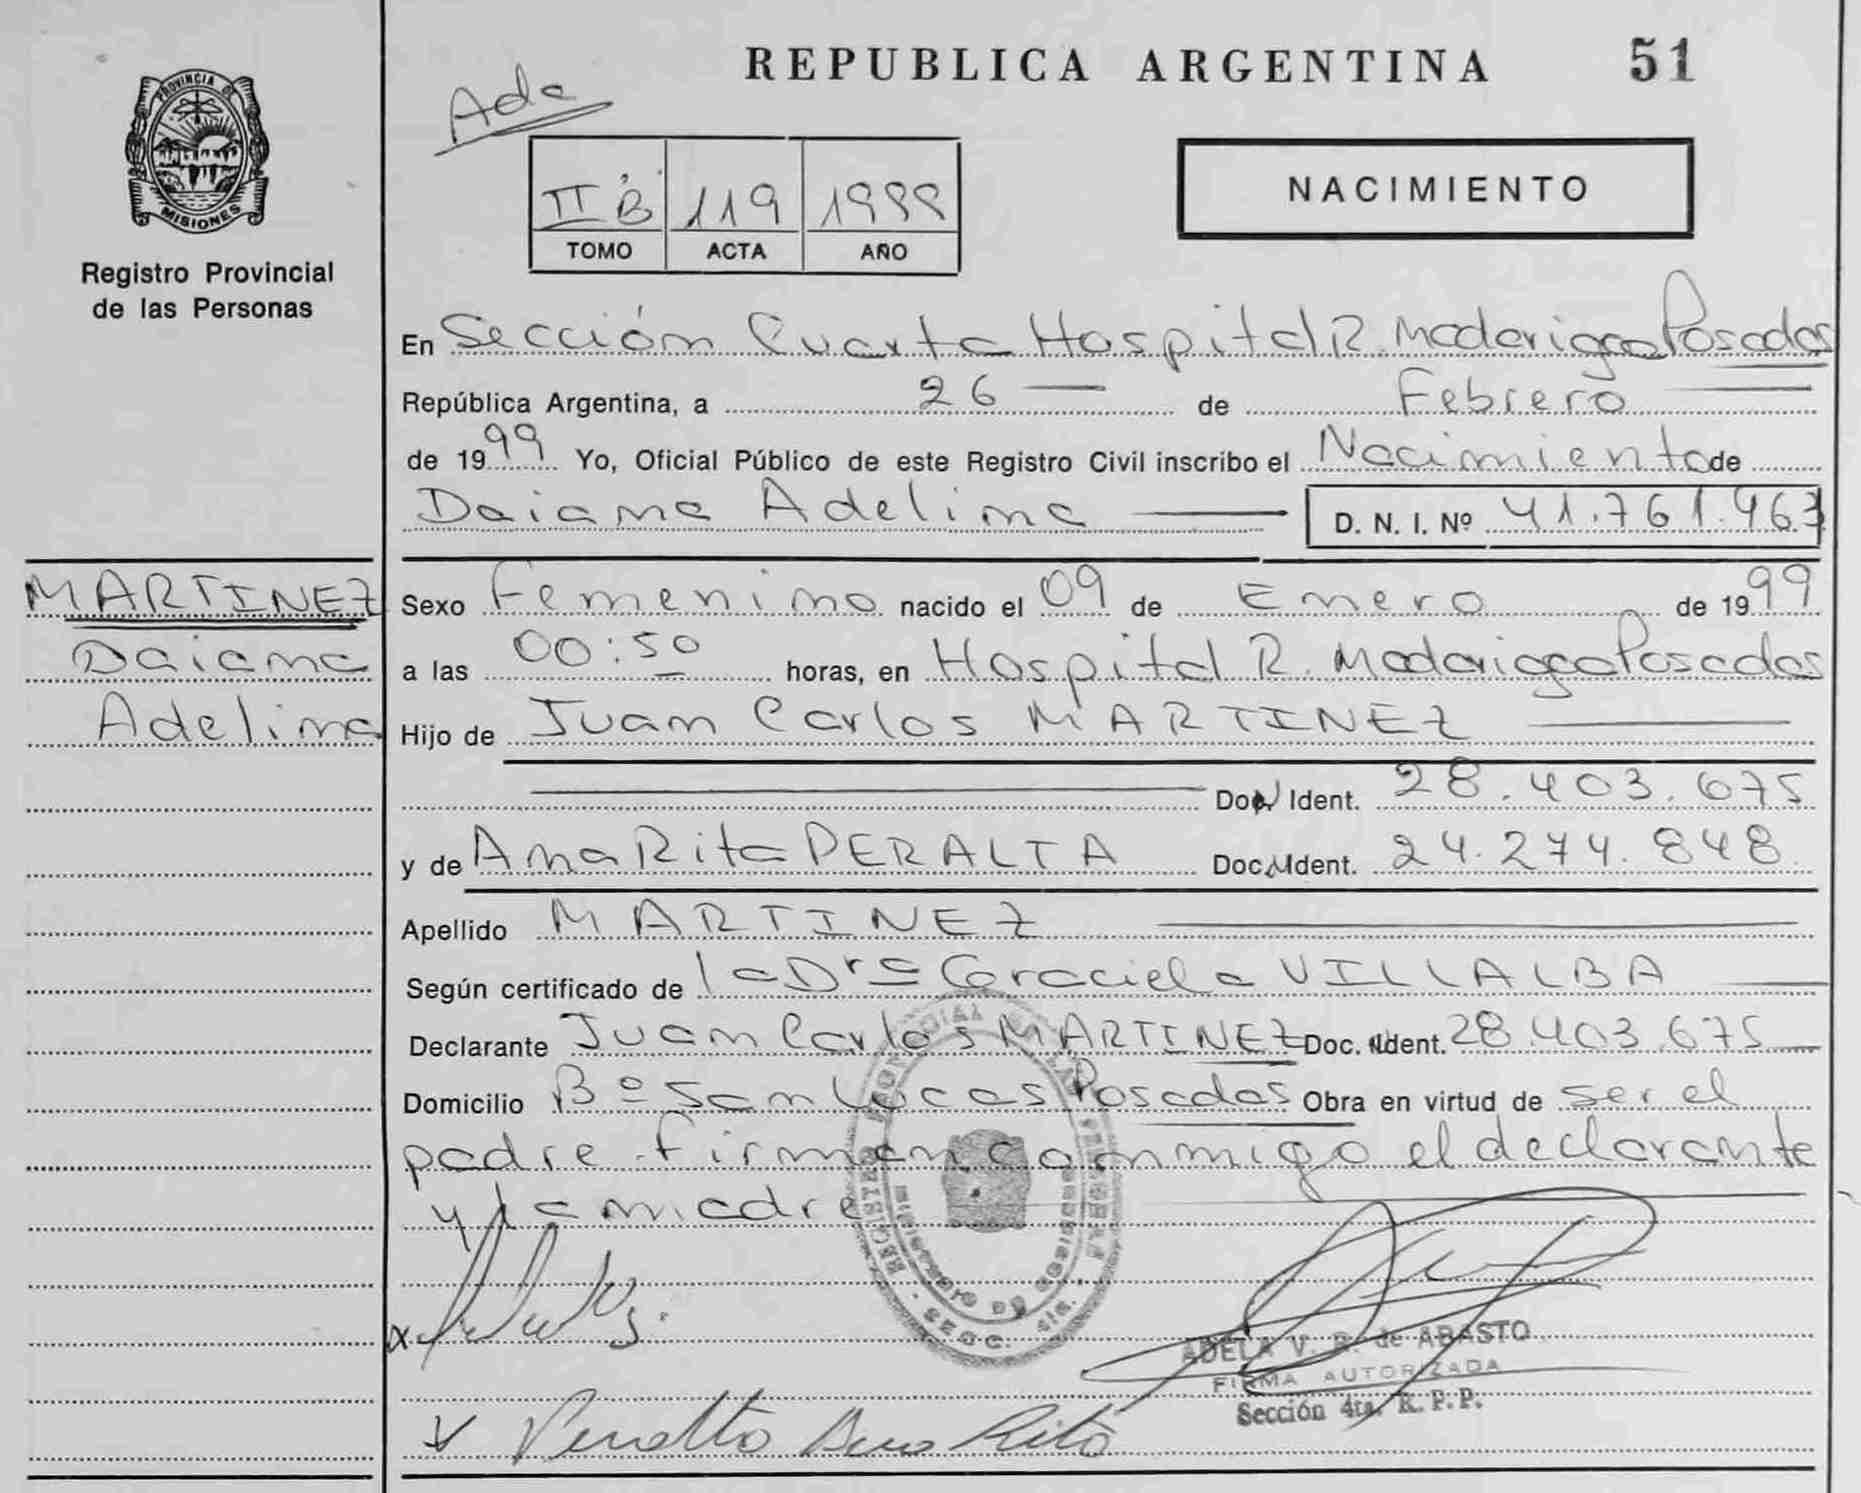 REPUBLICA ARGENTINA 51
Ada
PROVINCIA DE
MISIONES
Registro Provincial
de las Personas
II B 119 1999
TOMO ACTA AÑO
NACIMIENTO
En Sección Cuarta Hospital R. Madariaga Posadas
República Argentina, a 26 de Febrero
de 1999 Yo, Oficial Público de este Registro Civil inscribo el Nacimiento de
Daiana Adelina D. N. I. Nº 41.761.967
MARTINEZ
Daiana
Adelina
Sexo Femenino nacido el 09 de Enero de 1999
a las 00:50 horas, en Hospital R. Madariaga Posadas
Hijo de Juan Carlos MARTINEZ
Doc. Ident. 28.403.675
y de Ana Rita PERALTA Doc. Ident. 24.274.848
Apellido MARTINEZ
Según certificado de la Dra Graciela VILLALBA
Declarante Juan Carlos MARTINEZ Doc. Ident. 28.403.675
Domicilio Bº San Lucas Posadas Obra en virtud de ser el
padre. Firman conmigo el declarante
y la madre
ADELA V. R. de ABASTO
FIRMA AUTORIZADA
Sección 4ta. R. P. P.
Peralta Ana Rita